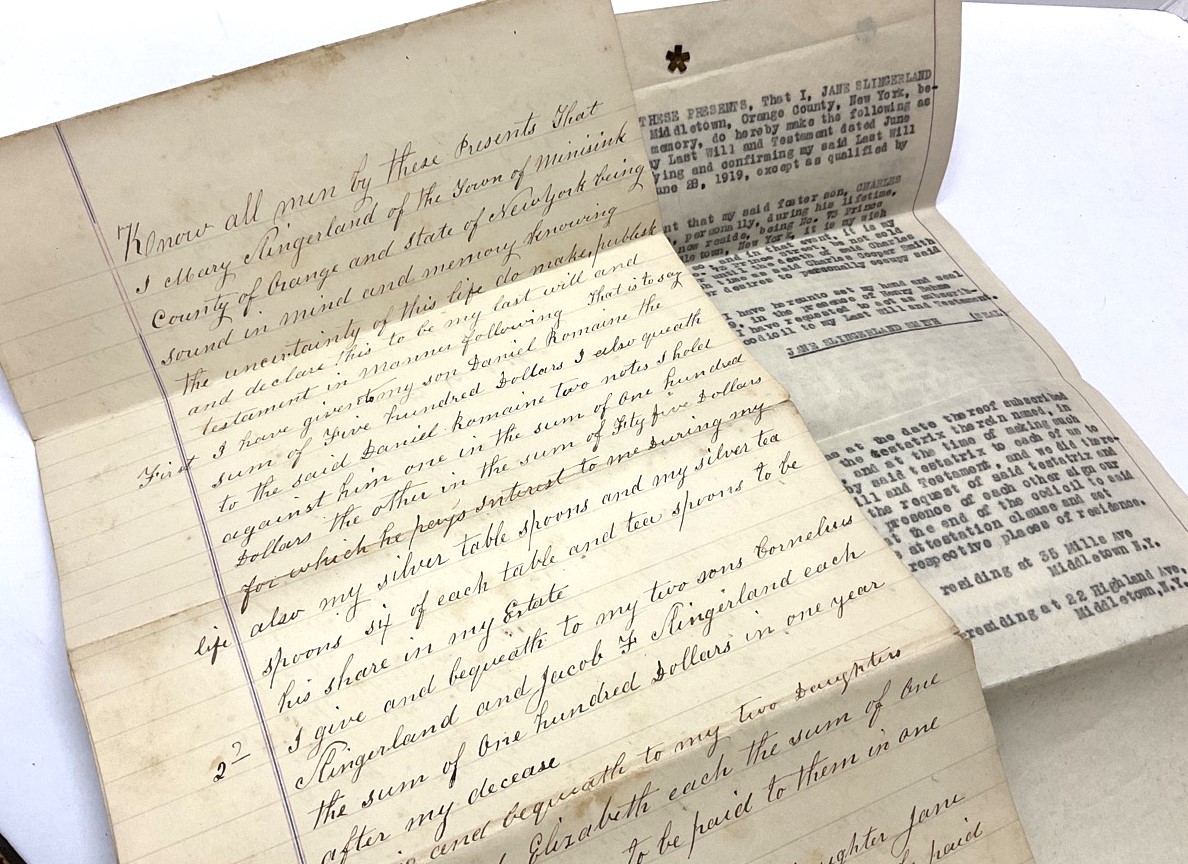 Know all men by these Presents That
I Mary Slingerland of the Town of Minisink
County of Orange and State of New York being
sound in mind and memory knowing
the uncertainty of this life do make, publish
and declare this to be my last will and
testament in manner following That is to say
First I have given to my son Daniel Romaine the
sum of Five hundred Dollars I also queath
to the said Daniel Romaine two notes I hold
against him one in the sum of One hundred
Dollars the other in the sum of Fify five Dollars
for which he pays Interest to me During my
life also my silver table spoons and my silver tea
spoons six of each table and tea spoons to be
his share in my Estate
2 I give and bequeath to my two sons Cornelius
Slingerland and Jacob F Slingerland each
the sum of One hundred Dollars in one year
after my decease
and bequeath to my two Daughters
Elizabeth each the sum of One
to be paid to them in one
Jane
paid
THESE PRESENTS, That I, JANE SLINGERLAND
Middletown, Orange County, New York, be-
memory, do hereby make the following as
y Last Will and Testament dated June
ying and confirming my said Last Will
une 28, 1919, except as qualified by
nt that my said foster son, CHARLES
, personally, during his lifetime,
now reside, being No. 73 Prince
dletown, New York, it is my wish
and in that event it is my
be not sold
until the death of said Charles
time as said Charles Cooper Smith
r desire to personally occupy said
have hereunto set my hand and seal
in the presence of
I have requested to act as
codicil to my Last Will and Testament.
JANE SLINGERLAND SMITH (SEAL)
at the date thereof subscribed
the testatrix therein named, in
and at the time of making such
by said testatrix to each of us to
ill and Testament, and we did there-
the request of said testatrix and
presence of each other sign our
at the end of the codicil to said
attestation clause and set
respective places of residence.
residing at 35 Mills Ave
Middletown N.Y.
residing at 22 Highland Ave.
Middletown, N.Y.